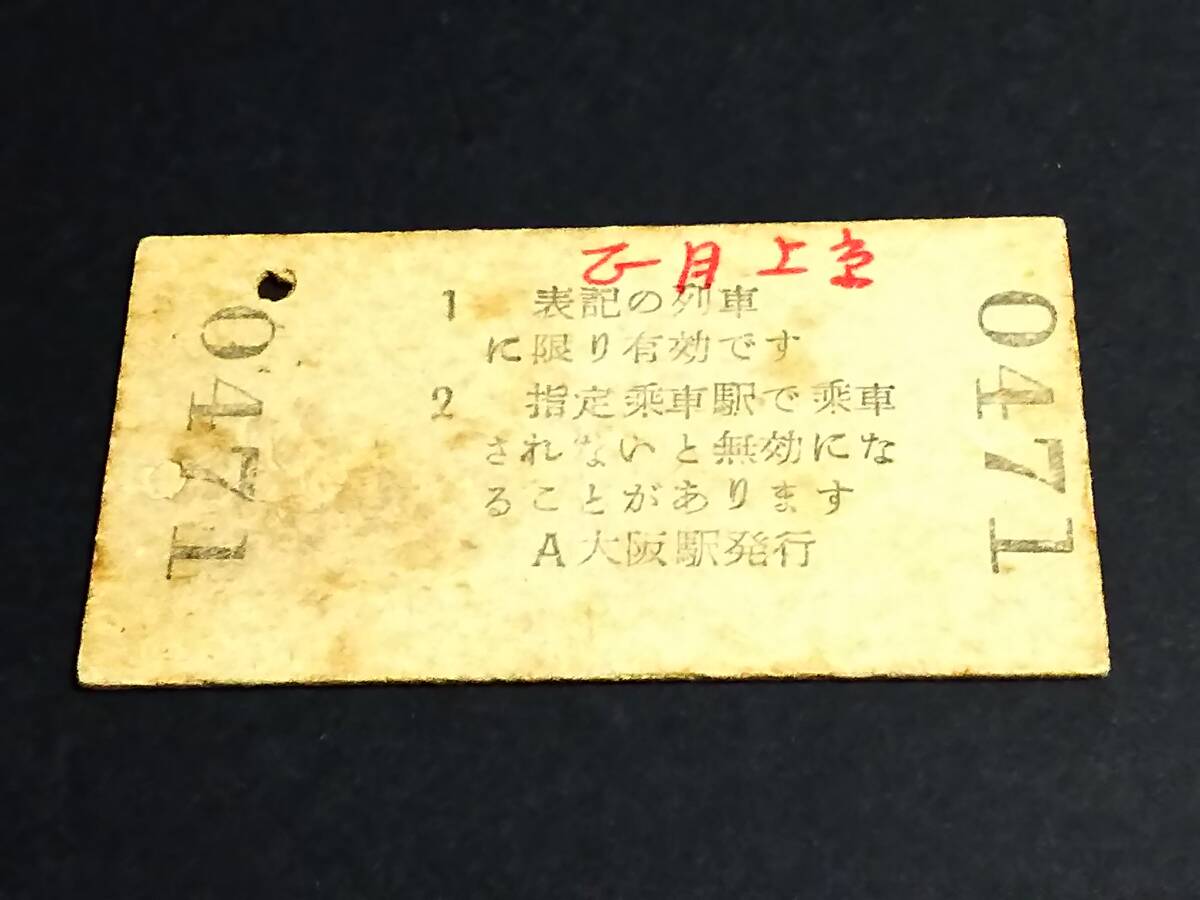 月上京
1 表記の列車
に限り有効です
2 指定乗車駅で乗車
されないと無効にな
ることがあります
A大阪駅発行
0471
0471